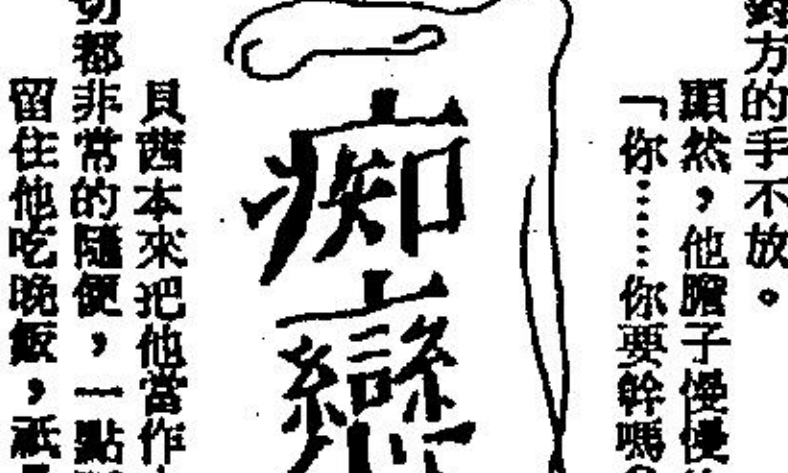 對方的手不放。
顯然，他膽子慢慢
「你……你要幹嗎
痴戀
貝茜本來把他當作
切都非常的隨便，一點
留住他吃晚飯，祇